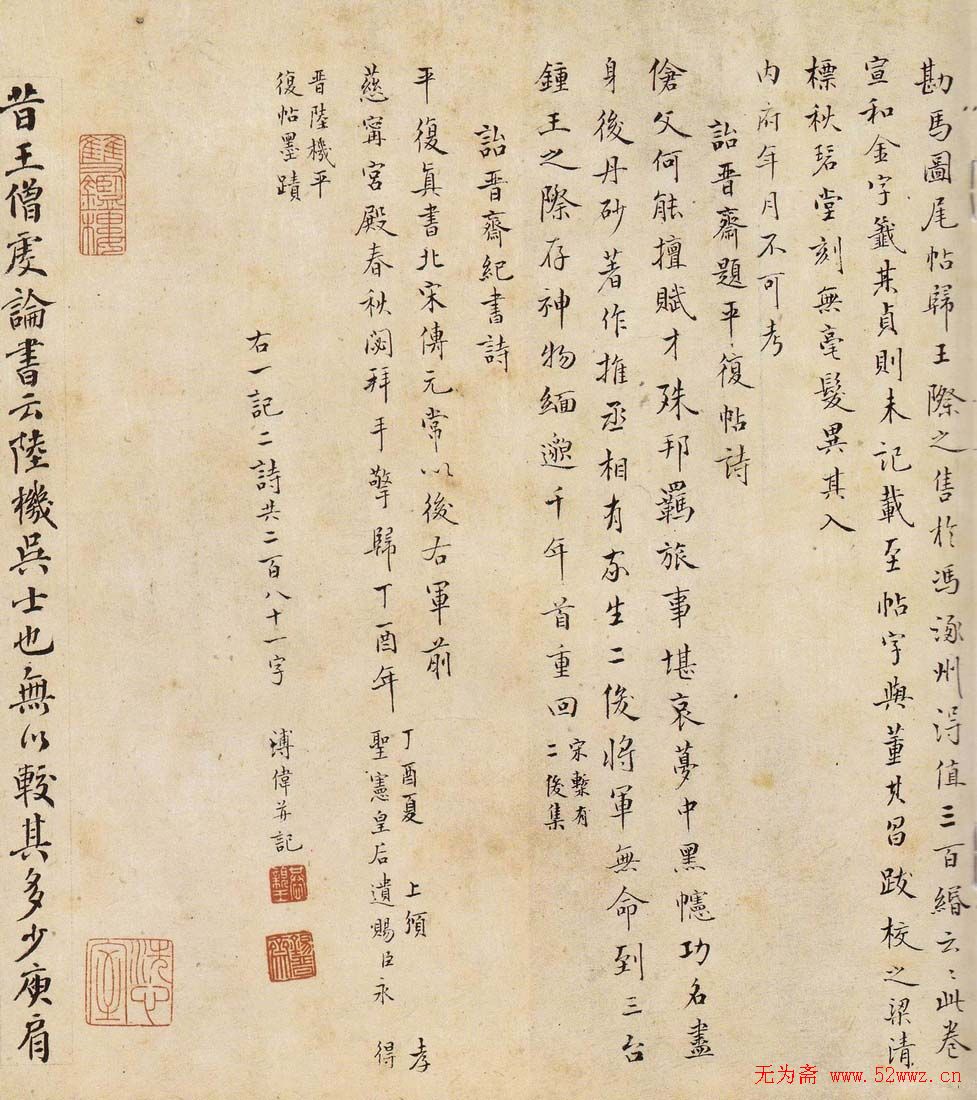 勘馬圖尾帖歸王際之售於馮涿州得值三百緡云〻此卷
宣和金字籤其貞則未記載至帖字與董其昌跋校之梁清
標秋碧堂刻無毫髮異其入
內府年月不可考
詒晉齋題平復帖詩
傖父何能擅賦才殊邦羈旅事堪哀夢中黑幰功名盡
身後丹砂著作推丞相有家生二俊將軍無命到三台
鍾王之際存神物緬邈千年首重回
宋槧有
二俊集
詒晉齋紀書詩
平復真書北宋傳元常以後右軍前
慈寧宮殿春秋閟拜手擎歸丁酉年
丁酉夏 上頒 孝
聖憲皇后遺賜臣永 得
晉陸機平
復帖墨蹟
右一記二詩共二百八十一字
溥偉并記
恭親王
錫晉齋
雙鑑樓
洗心室
昔王僧虔論書云陸機吳士也無以較其多少庾肩
无为斋 www.52wwz.cn